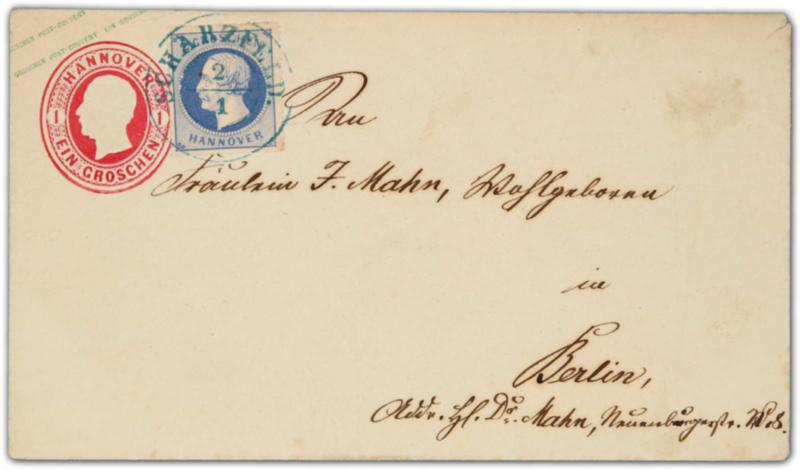 GROSCHEN POST-COUVERT EIN GROSCHEN
GROSCHEN POST-COUVERT EIN
HANNOVER
1 1
EIN GROSCHEN
SCHARZFELD.
2
1
HANNOVER
An
Fräulein J. Mahn, Wohlgeboren
in
Berlin,
Addr. Hl. Dr. Mahn, Neuenburgerstr.